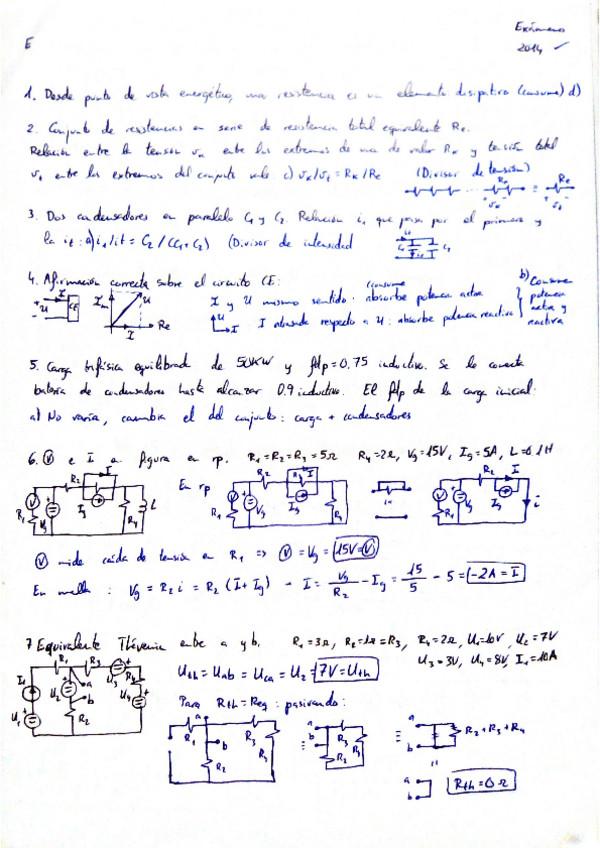 Exámenes
E 2014 ✓
1. Desde punto de vista energético, una resistencia es un elemento disipativo (consume) d)
2. Conjunto de resistencias en serie de resistencia total equivalente Re.
Relación entre la tensión υk entre los extremos de una de valor Rk y tensión total
υt entre los extremos del conjunto vale c) υk/υt = Rk/Re (Divisor de tensión)
Rk Re
+υk- +υt-
3. Dos condensadores en paralelo C1 y C2. Relación i1 que pasa por el primero y
la it: a) i1/it = C2/(C1+C2) (Divisor de intensidad
4. Afirmación correcta sobre el circuito CE:
I y U mismo sentido: absorbe potencia activa
(consume
I atrasada respecto a U: absorbe potencia reactiva
b) Consume
potencia
activa y
reactiva
I U CE Im U I Re
5. Carga trifásica equilibrada de 50KW y fdp=0,75 inductivo. Se le conecta
batería de condensadores hasta alcanzar 0.9 inductivo. El fdp de la carga inicial:
a) No varía, cambia el del conjunto: carga + condensadores
6. V e I en figura en rp. R1=R2=R3=5Ω R4=2Ω, Vg=15V, Ig=5A, L=0.1H
En rp
V mide caída de tensión en R1 => V = Vg = 15V = V
En malla: Vg = R2 i = R2 (I+Ig) - I = Vg/R2 - Ig = 15/5 - 5 = -2A = I
7 Equivalente Thévenin entre a y b. R1=3Ω, R2=1Ω=R3, R4=2Ω, U1=10V, U2=7V
U3=3V, U4=8V, I1=10A
Uth = Uab = Uca = U2 = 7V = Uth
Para Rth = Req: pasivando:
R2+R3+R4
Rth = 0Ω